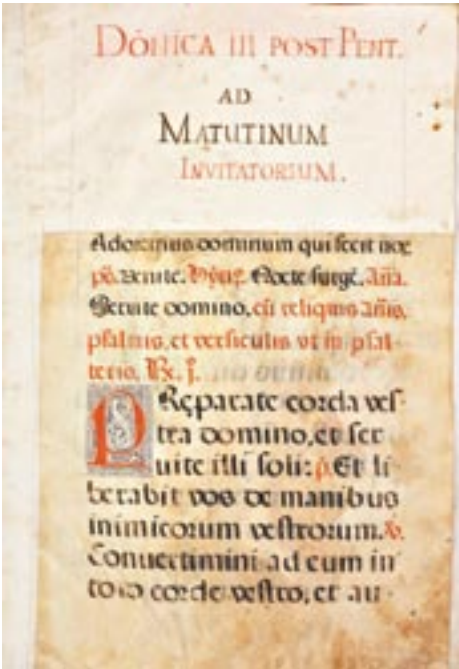 DOÑICA III POST PENT.
AD
MATUTINUM
INVITATORIUM.
Adoremus dominum qui fecit nos
ps. Venite. Hỹmꝰ. Nocte surgẽ. Aña.
Servite domino, cũ reliquis añis,
psalmis, et versiculis vt in psal-
terio. Rx. j.
PRęparate corda ves-
tra domino, et ser
uite illi soli: p. Et li-
berabit vos de manibus
inimicorum vestrorum. V.
Conuertimini ad eum in
toto corde vestro, et au-